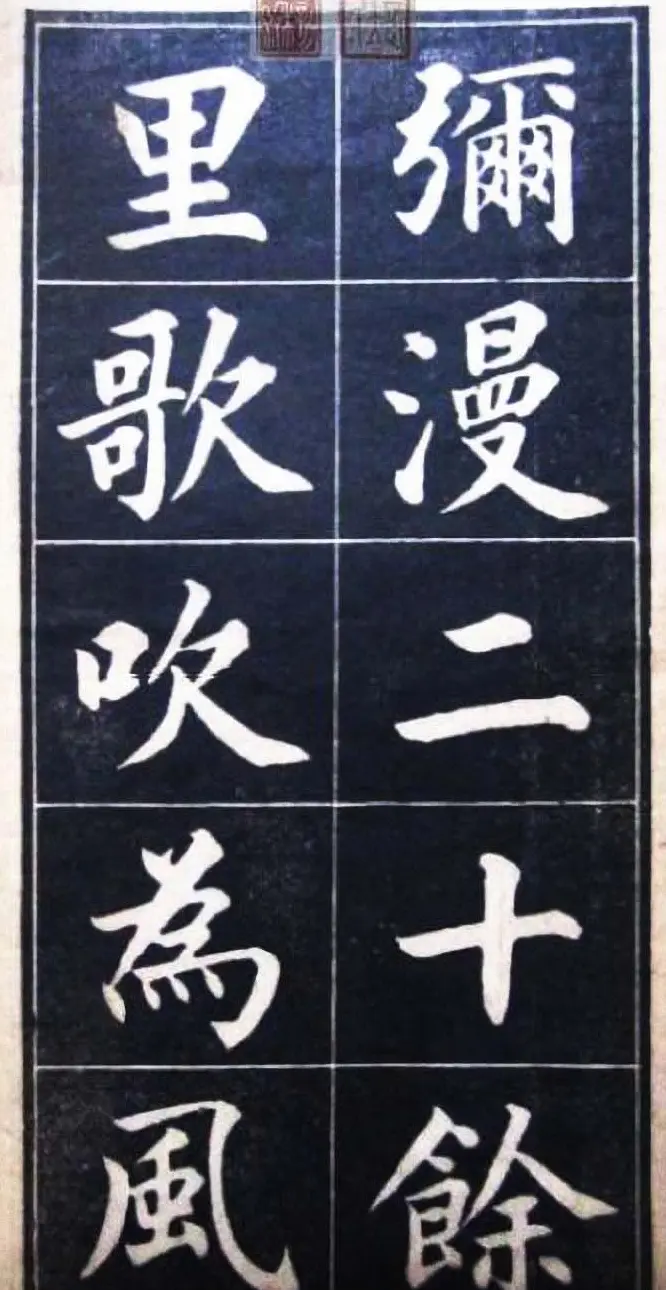 彌漫二十餘
里歌吹為風